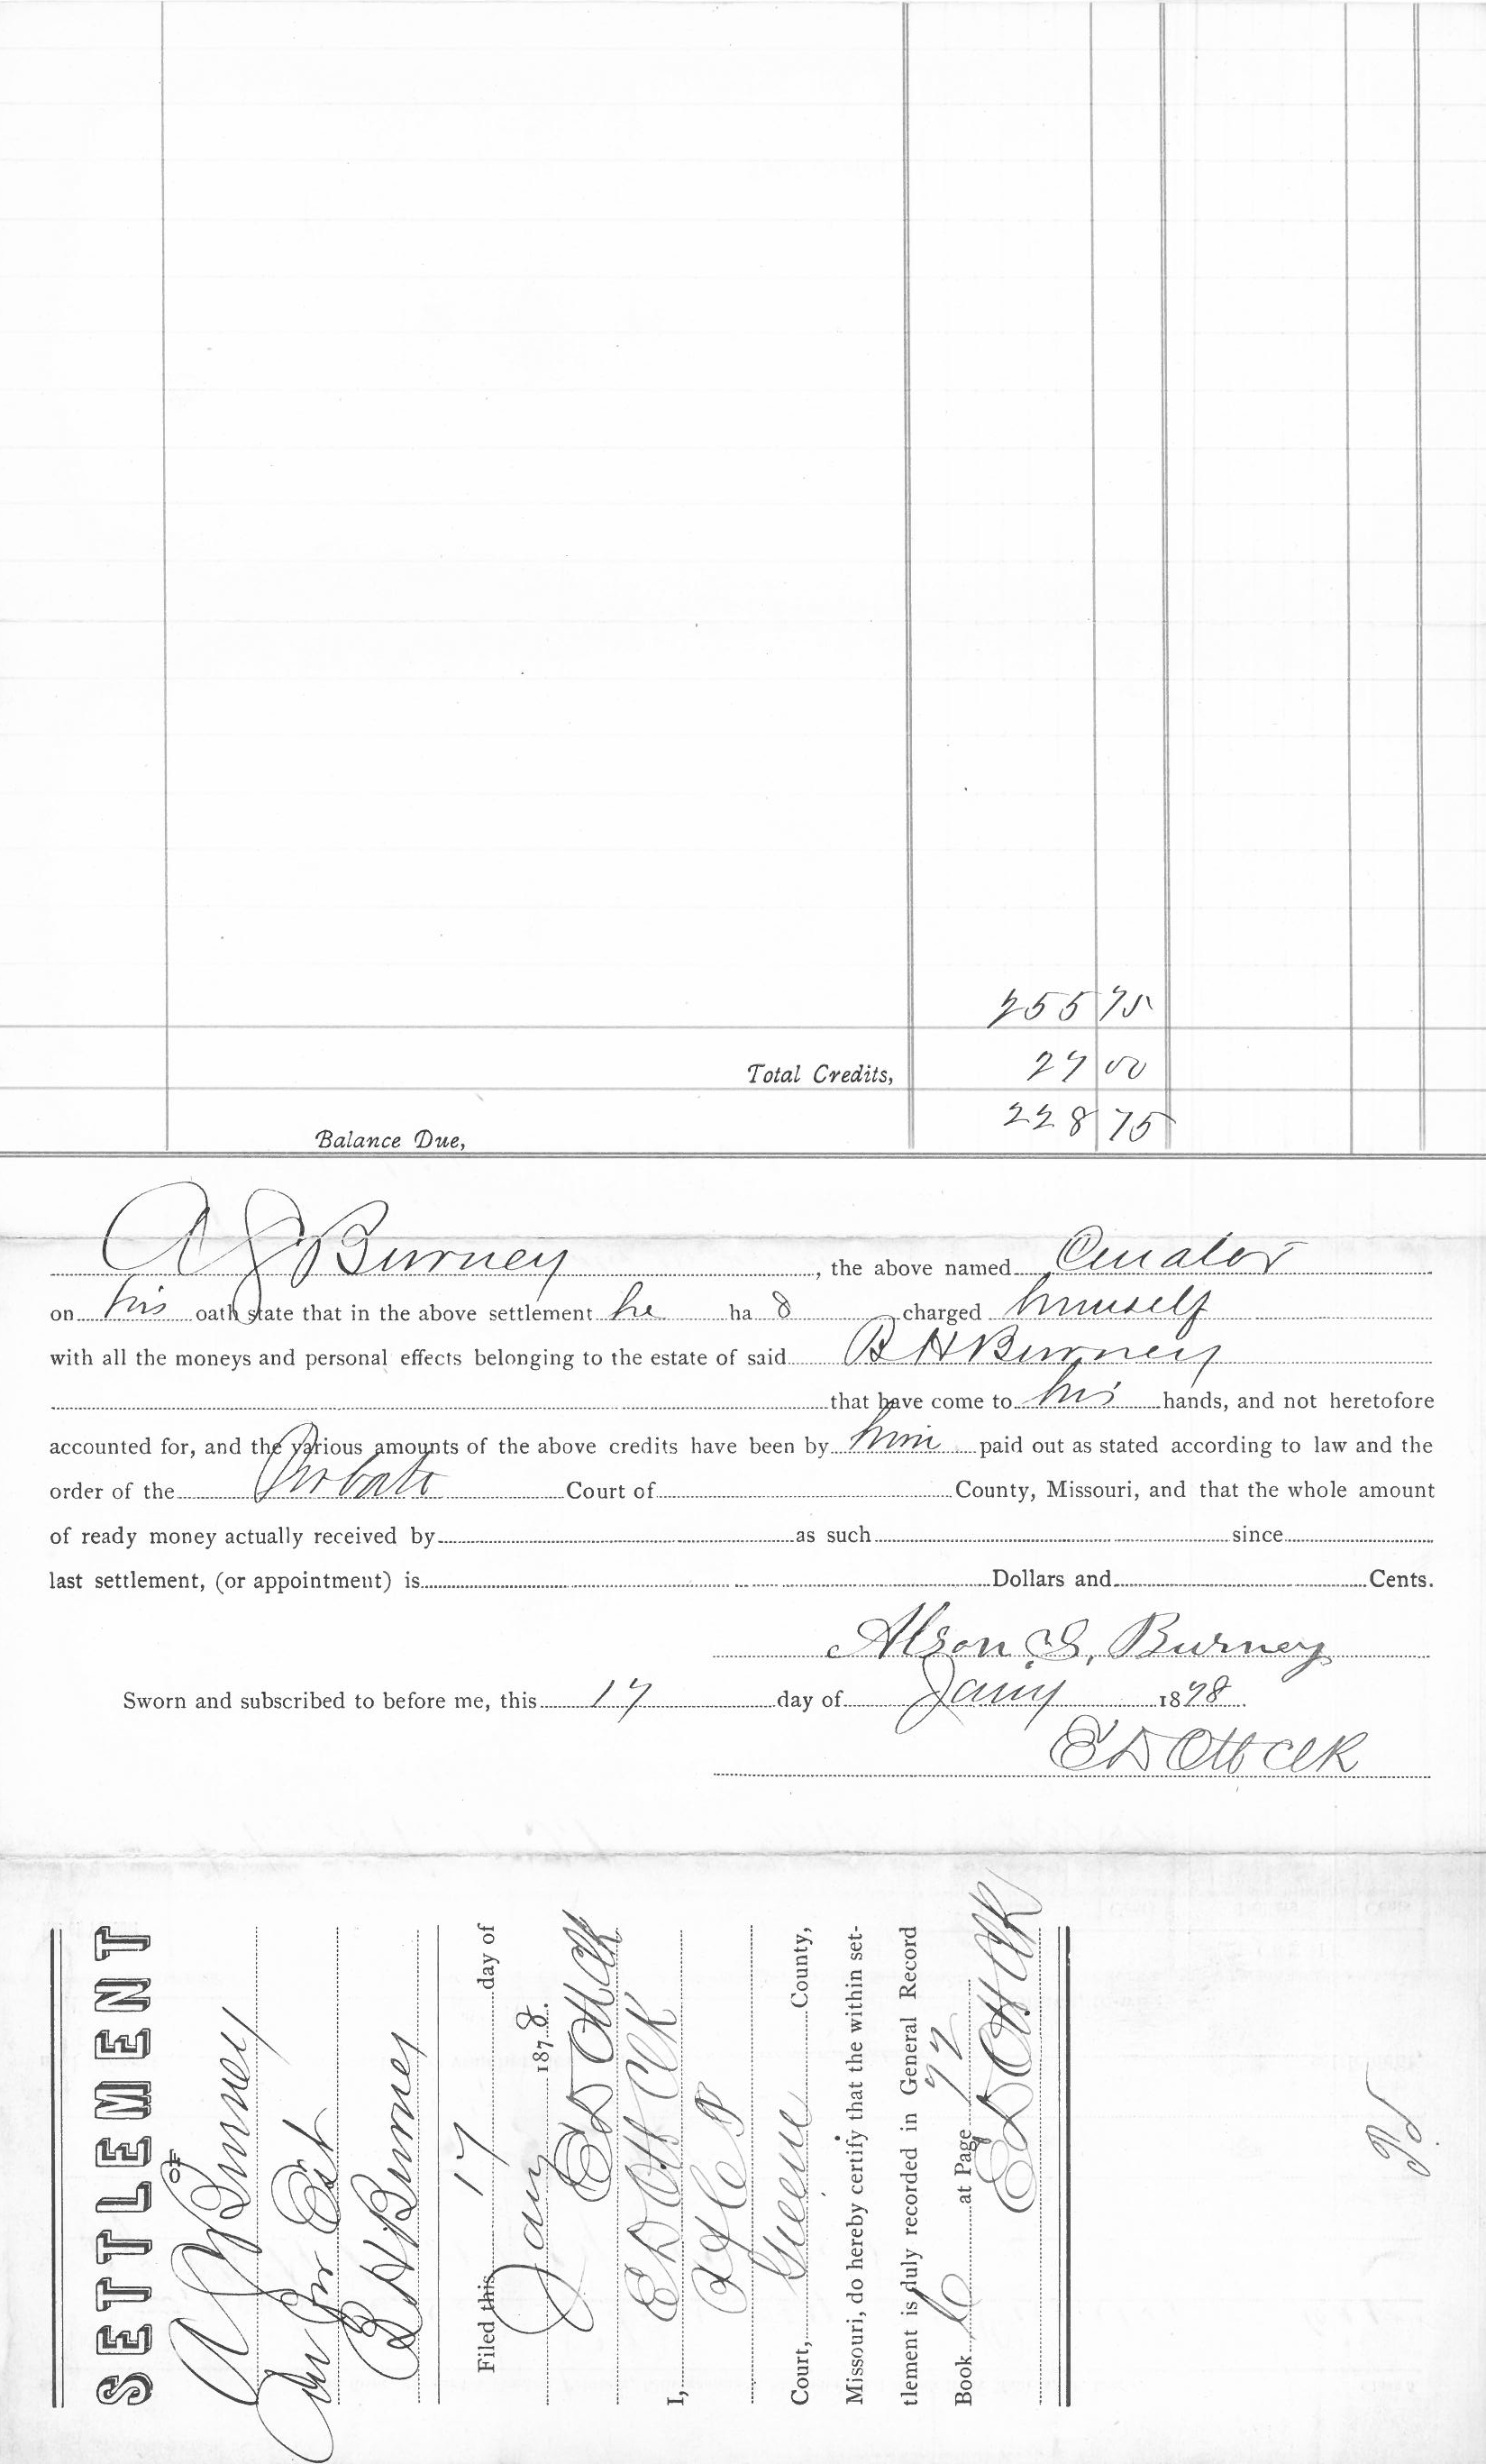 255 75
Total Credits, 27 00
Balance Due, 228 75
A J Burney, the above named Curator
on his oath state that in the above settlement he ha s charged himself
with all the moneys and personal effects belonging to the estate of said B H Burney
that have come to his hands, and not heretofore
accounted for, and the various amounts of the above credits have been by him paid out as stated according to law and the
order of the Probate Court of County, Missouri, and that the whole amount
of ready money actually received by as such since
last settlement, (or appointment) is Dollars and Cents.
Alson S, Burney
Sworn and subscribed to before me, this 17 day of Jany 1878.
E D Ott Clk
SETTLEMENT
OF
A J Burney
Cur for Est
B H Burney
Filed this 17 day of
Jany 1878.
E D Ott Clk
I, E D Ott Clk
of Co P
Court, Greene County,
Missouri, do hereby certify that the within set-
tlement is duly recorded in General Record
Book at Page 72
E D Ott Clk
Pd